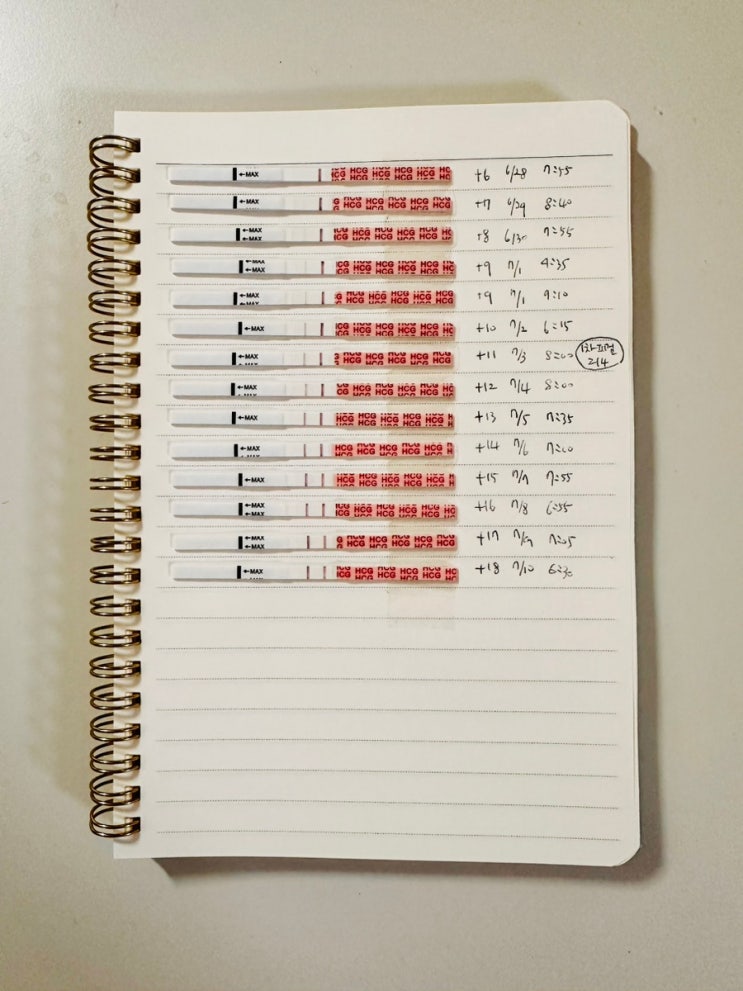 MAX HCG HCG HCG HCG HCG +6 6/28
MAX HCG HCG HCG HCG HCG +7 6/29 8:40
MAX MAX HCG HCG HCG HCG HCG +8 6/30 7:55
MAX MAX HCG HCG HCG HCG HCG +9 7/1 4:35
MAX MAX HCG HCG HCG HCG HCG +9 7/1 9:10
MAX HCG HCG HCG HCG HCG +10 7/2 6:15
MAX MAX HCG HCG HCG HCG HCG +11 7/3 8:00 1차피검
214
MAX HCG HCG HCG HCG HCG +12 7/4 8:00
MAX HCG HCG HCG HCG HCG +13 7/5 7:35
MAX HCG HCG HCG HCG HCG +14 7/6 7:00
MAX HCG HCG HCG HCG HCG +15 7/7 7:55
MAX MAX HCG HCG HCG HCG HCG +16 7/8 6:55
MAX MAX HCG HCG HCG HCG HCG +17 7/9 7:05
MAX HCG HCG HCG HCG HCG +18 7/10 6:30